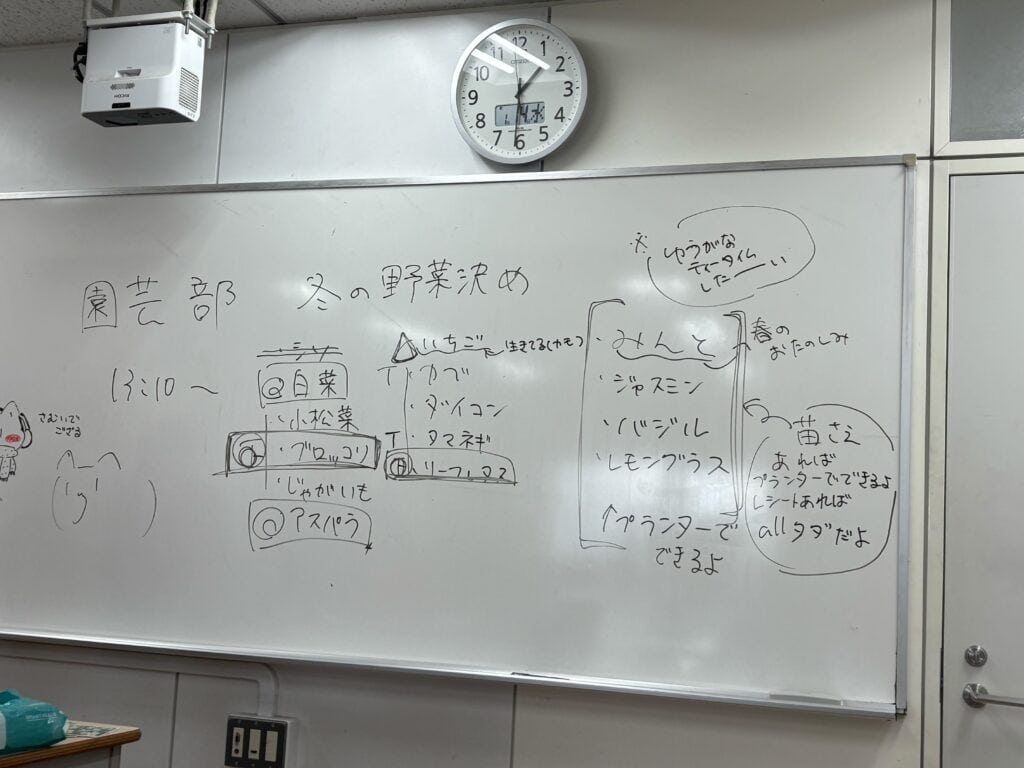 園芸部 冬の野菜決め
13:10～
さむいで
ござる
シソ
◎白菜
・小松菜
◎・ブロッコリ
・じゃがいも
◎アスパラ
△いちご 生きてる(かも)
T・カブ
・ダイコン
T・タマネギ
リーフレタス
※ ゆうがな
ティータイム
したーい
・みんと
・ジャスミン
・バジル
・レモングラス
↑プランターで
できるよ
春の
おたのしみ
苗さえ
あれば
プランターでできるよ
レシートあれば
allタダだよ
12
1
2
3
4
5
6
7
8
9
10
11
CITIZEN
RICOH